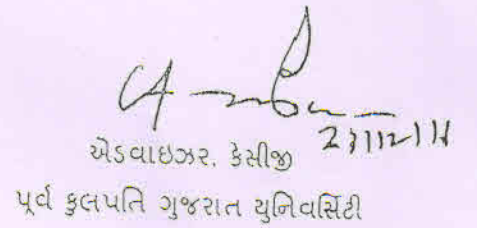 એડવાઇઝર, કેસીજી
પૂર્વ કુલપતિ ગુજરાત યુનિવર્સિટી